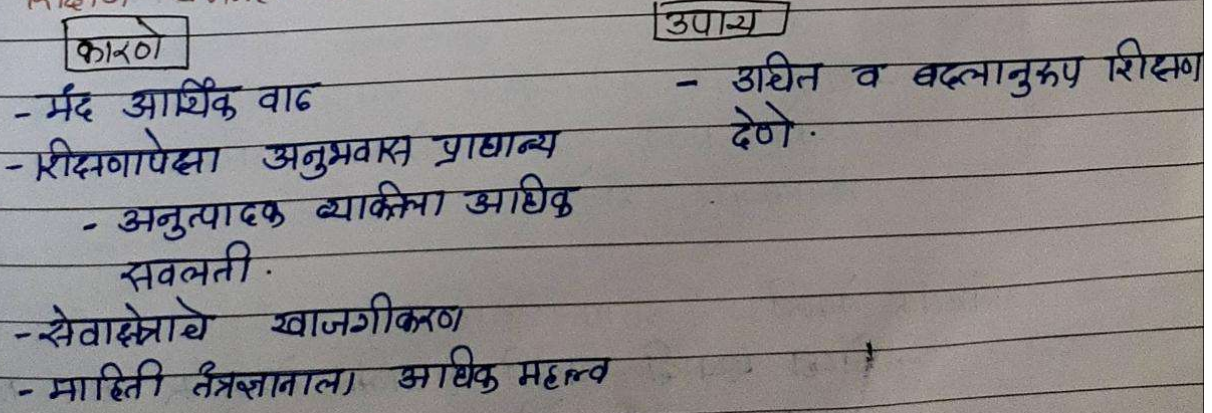 कारणे
- मंद आर्थिक वाढ
- शिक्षणापेक्षा अनुभवास प्राधान्य
- अनुत्पादक व्यक्तिला अधिक
सवलती.
- सेवाक्षेत्राचे खाजगीकरण
- माहिती तंत्रज्ञानाला अधिक महत्व
उपाय
- उचित व बदलानुरुप शिक्षण
देणे.